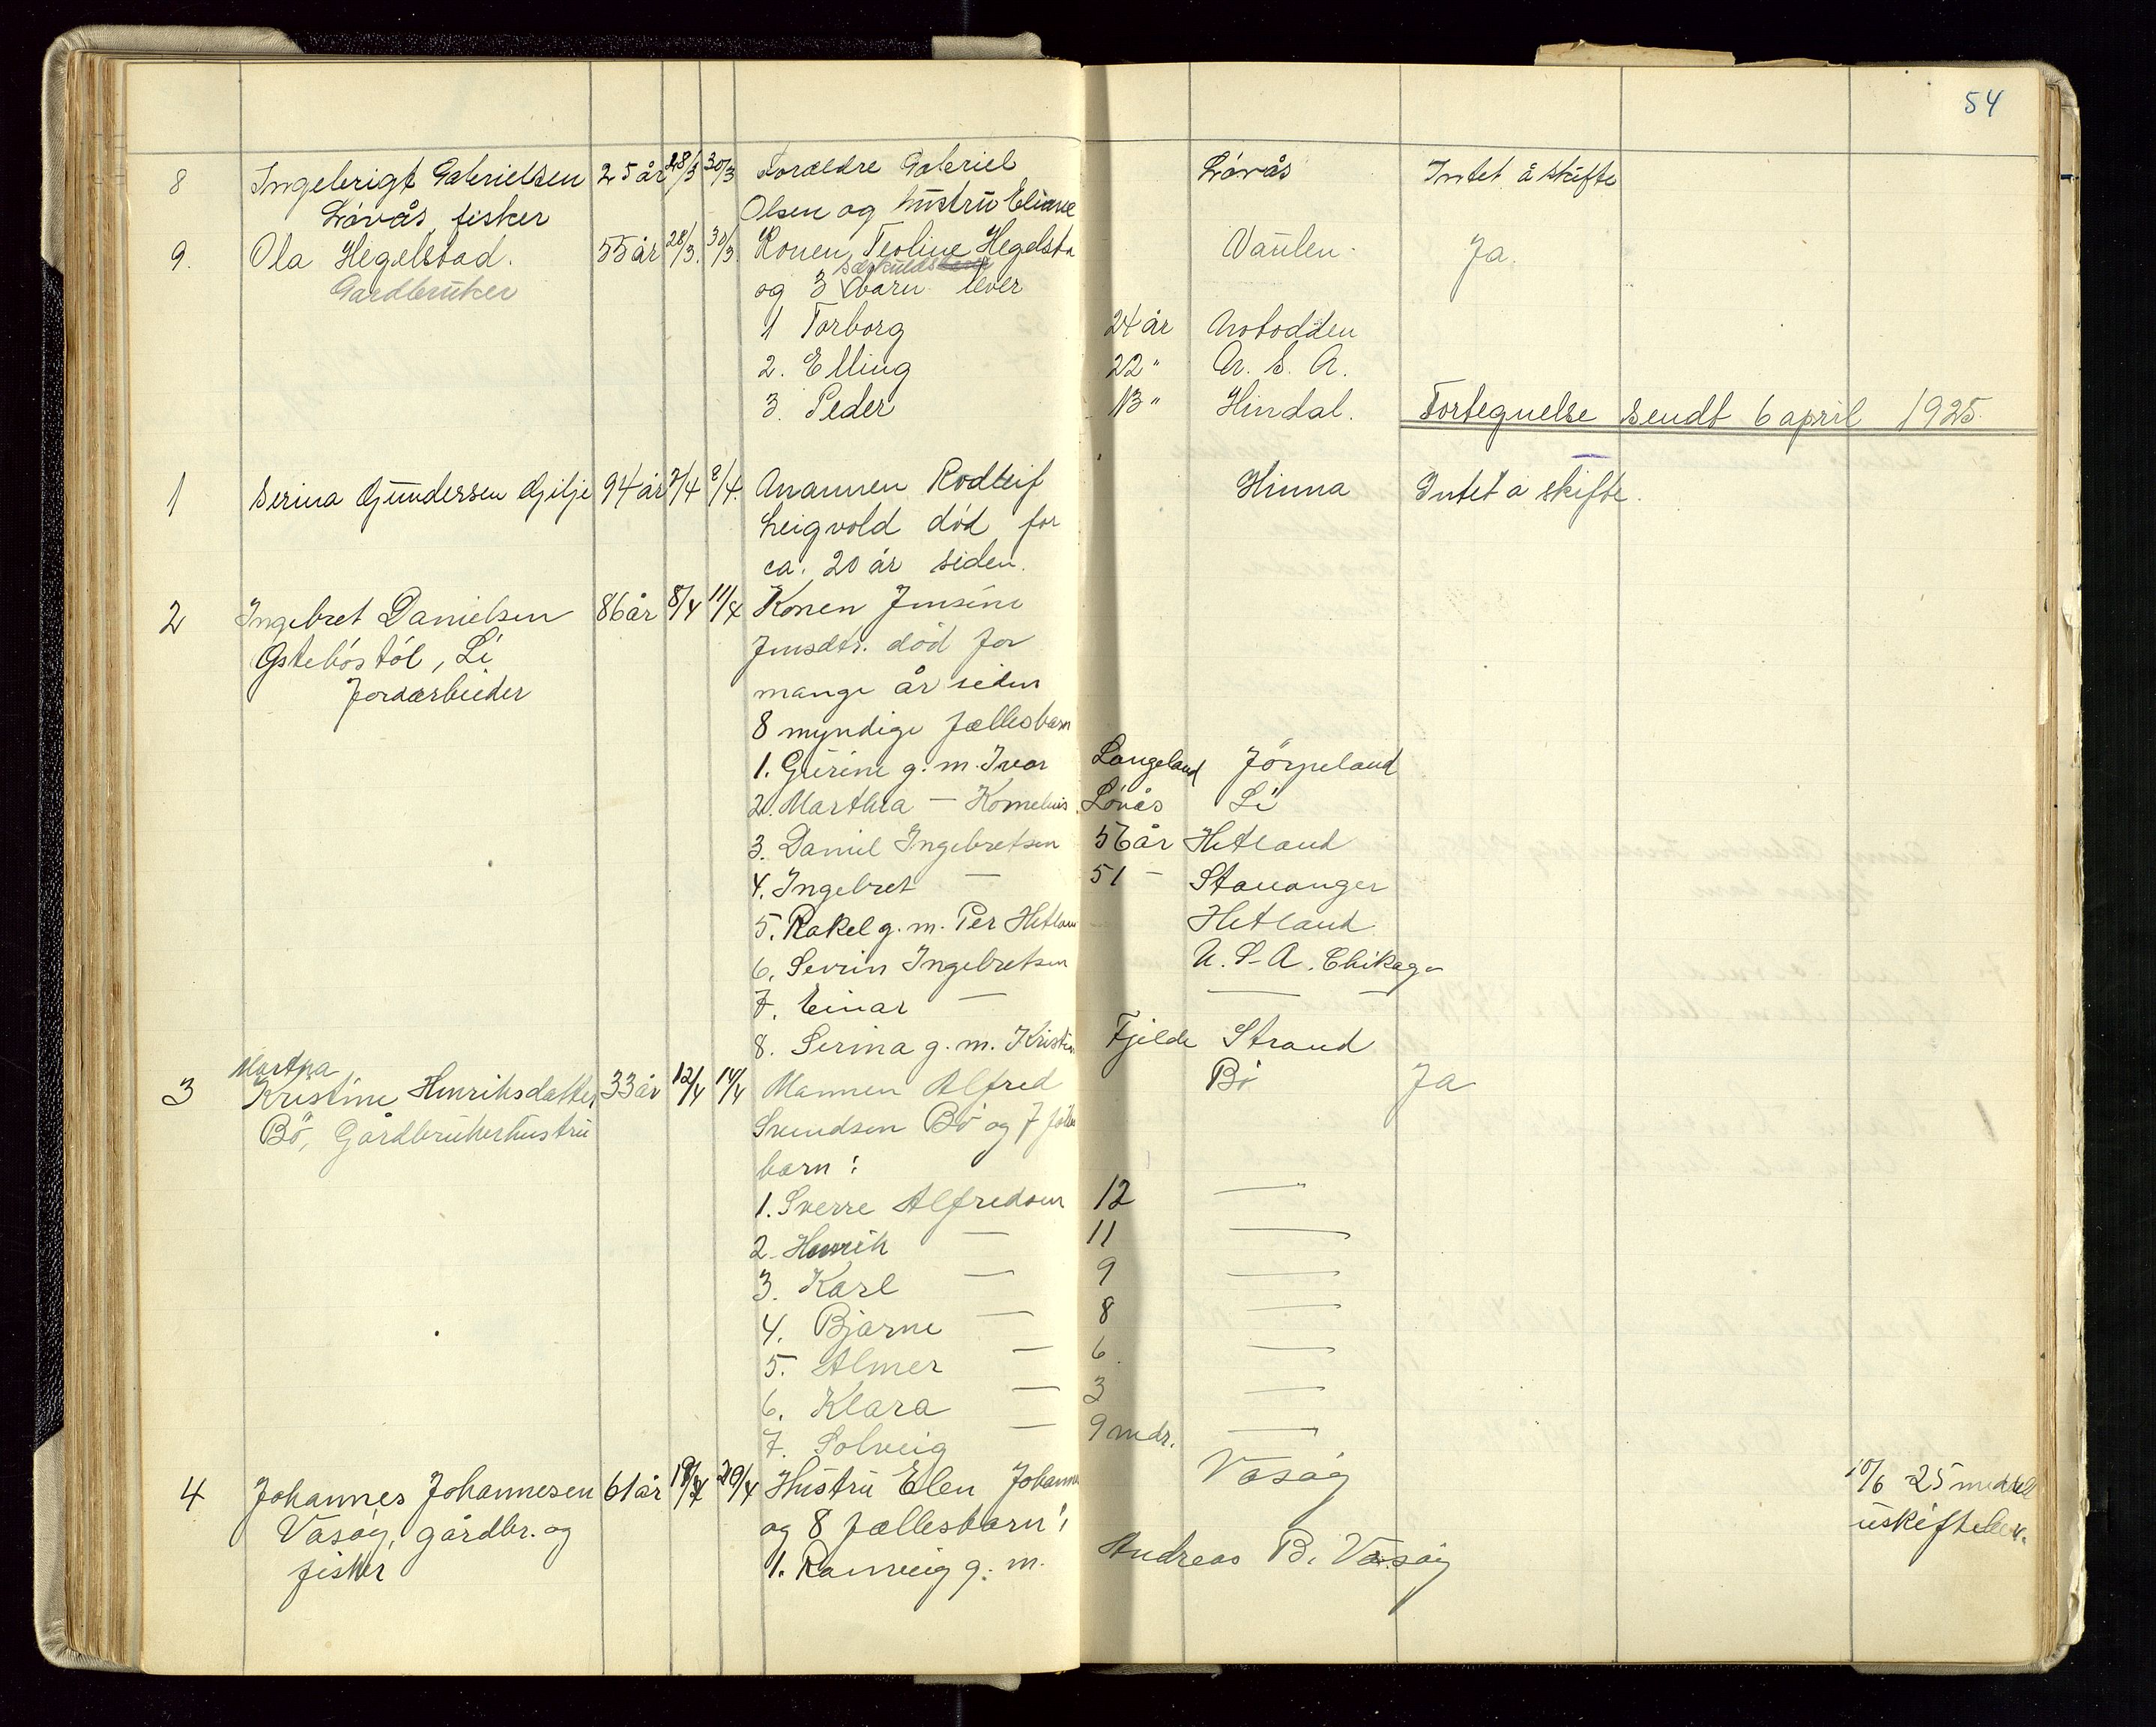 54
8 Ingebrigt Gabrielsen 25 år 28/3 30/3 Forældre Gabriel Lövås Intet å skifte
Lövås, fisker Olsen og hustru Eliane
9. Ola Hegelstad. 55 år 28/3. 30/3. Konen Teoline Hegelsta Vaulen. Ja.
særkulds
Gardbruker og 3 barn lever
1 Torborg 24 år Notodden
2. Elling 22 " U. S. A.
3. Peder 13 " Hindal. Fortegnelse sendt 6 april 1925.
1 Serina Gundersen Gilje 94 år 7/4 8/4. Mannen Rodleif Hinna Intet å skifte.
Leigvold död for
ca. 20 år siden.
2 Ingebret Danielsen 86 år 8/4 11/4 Konen Jensine
Östeböstöl, Li Jensdtr. död for
Jordarbeider mange år siden
8 myndige fællesbarn
1. Gurine g. m. Ivar Langeland Jörpeland
2. Marthea — Kornelius Lövås Li
3. Daniel Ingebretsen 56 år Hetland
4. Ingebret — 51 — Stavanger
5. Rakel g. m. Per Hetlan Hetland
6. Sevrin Ingebretsen U. S. A. Chikago
7. Einar — — —
8. Serina g. m. Kristia Fjelde Strand
Martha
3 Kristine Henriksdatter 33 år 12/4 14/4 Mannen Alfred Bö Ja
Bö, Gårdbrukerhustru Svendsen Bö og 7 fælles
barn :
1. Sverre Alfredsen 12 —"
2. Henrik — 11 —
3. Karl — 9 —
4. Bjarne — 8 —
5. Almer — 6. —
6. Klara — 3 —
7. Solveig — 9 mdr. —
4 Johannes Johannesen 61 år 18/4 20/4 Hustru Elen Johanne Vasöy 10/6 25 meddell
Vasöy, gårdbr. og og 8 fællesbarn: uskiftebev.
fisker 1. Ranveig g. m. Andreas B. Vasöy